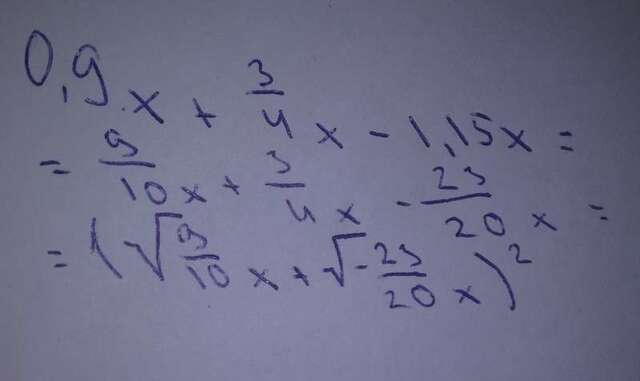 0,9x + 3/4 x - 1,15x =
= 9/10 x + 3/4 x - 23/20 x =
= (√9/10 x + √-23/20 x)²